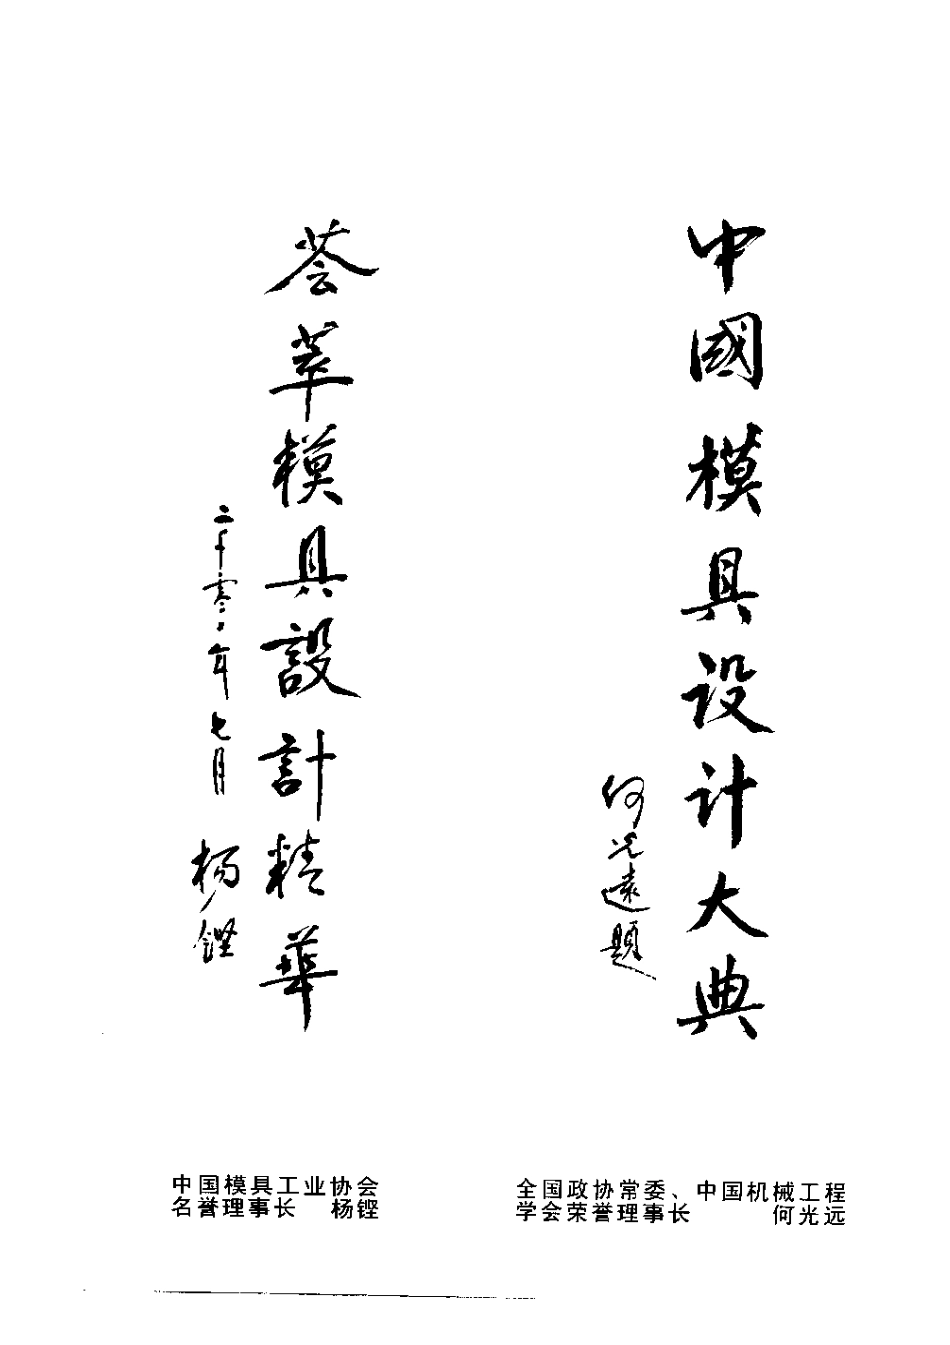 中國模具设计大典
何光遠題
荟萃模具設計精華
二千零一年七月
杨铿
全国政协常委、中国机械工程
学会荣誉理事长 何光远
中国模具工业协会
名誉理事长 杨铿